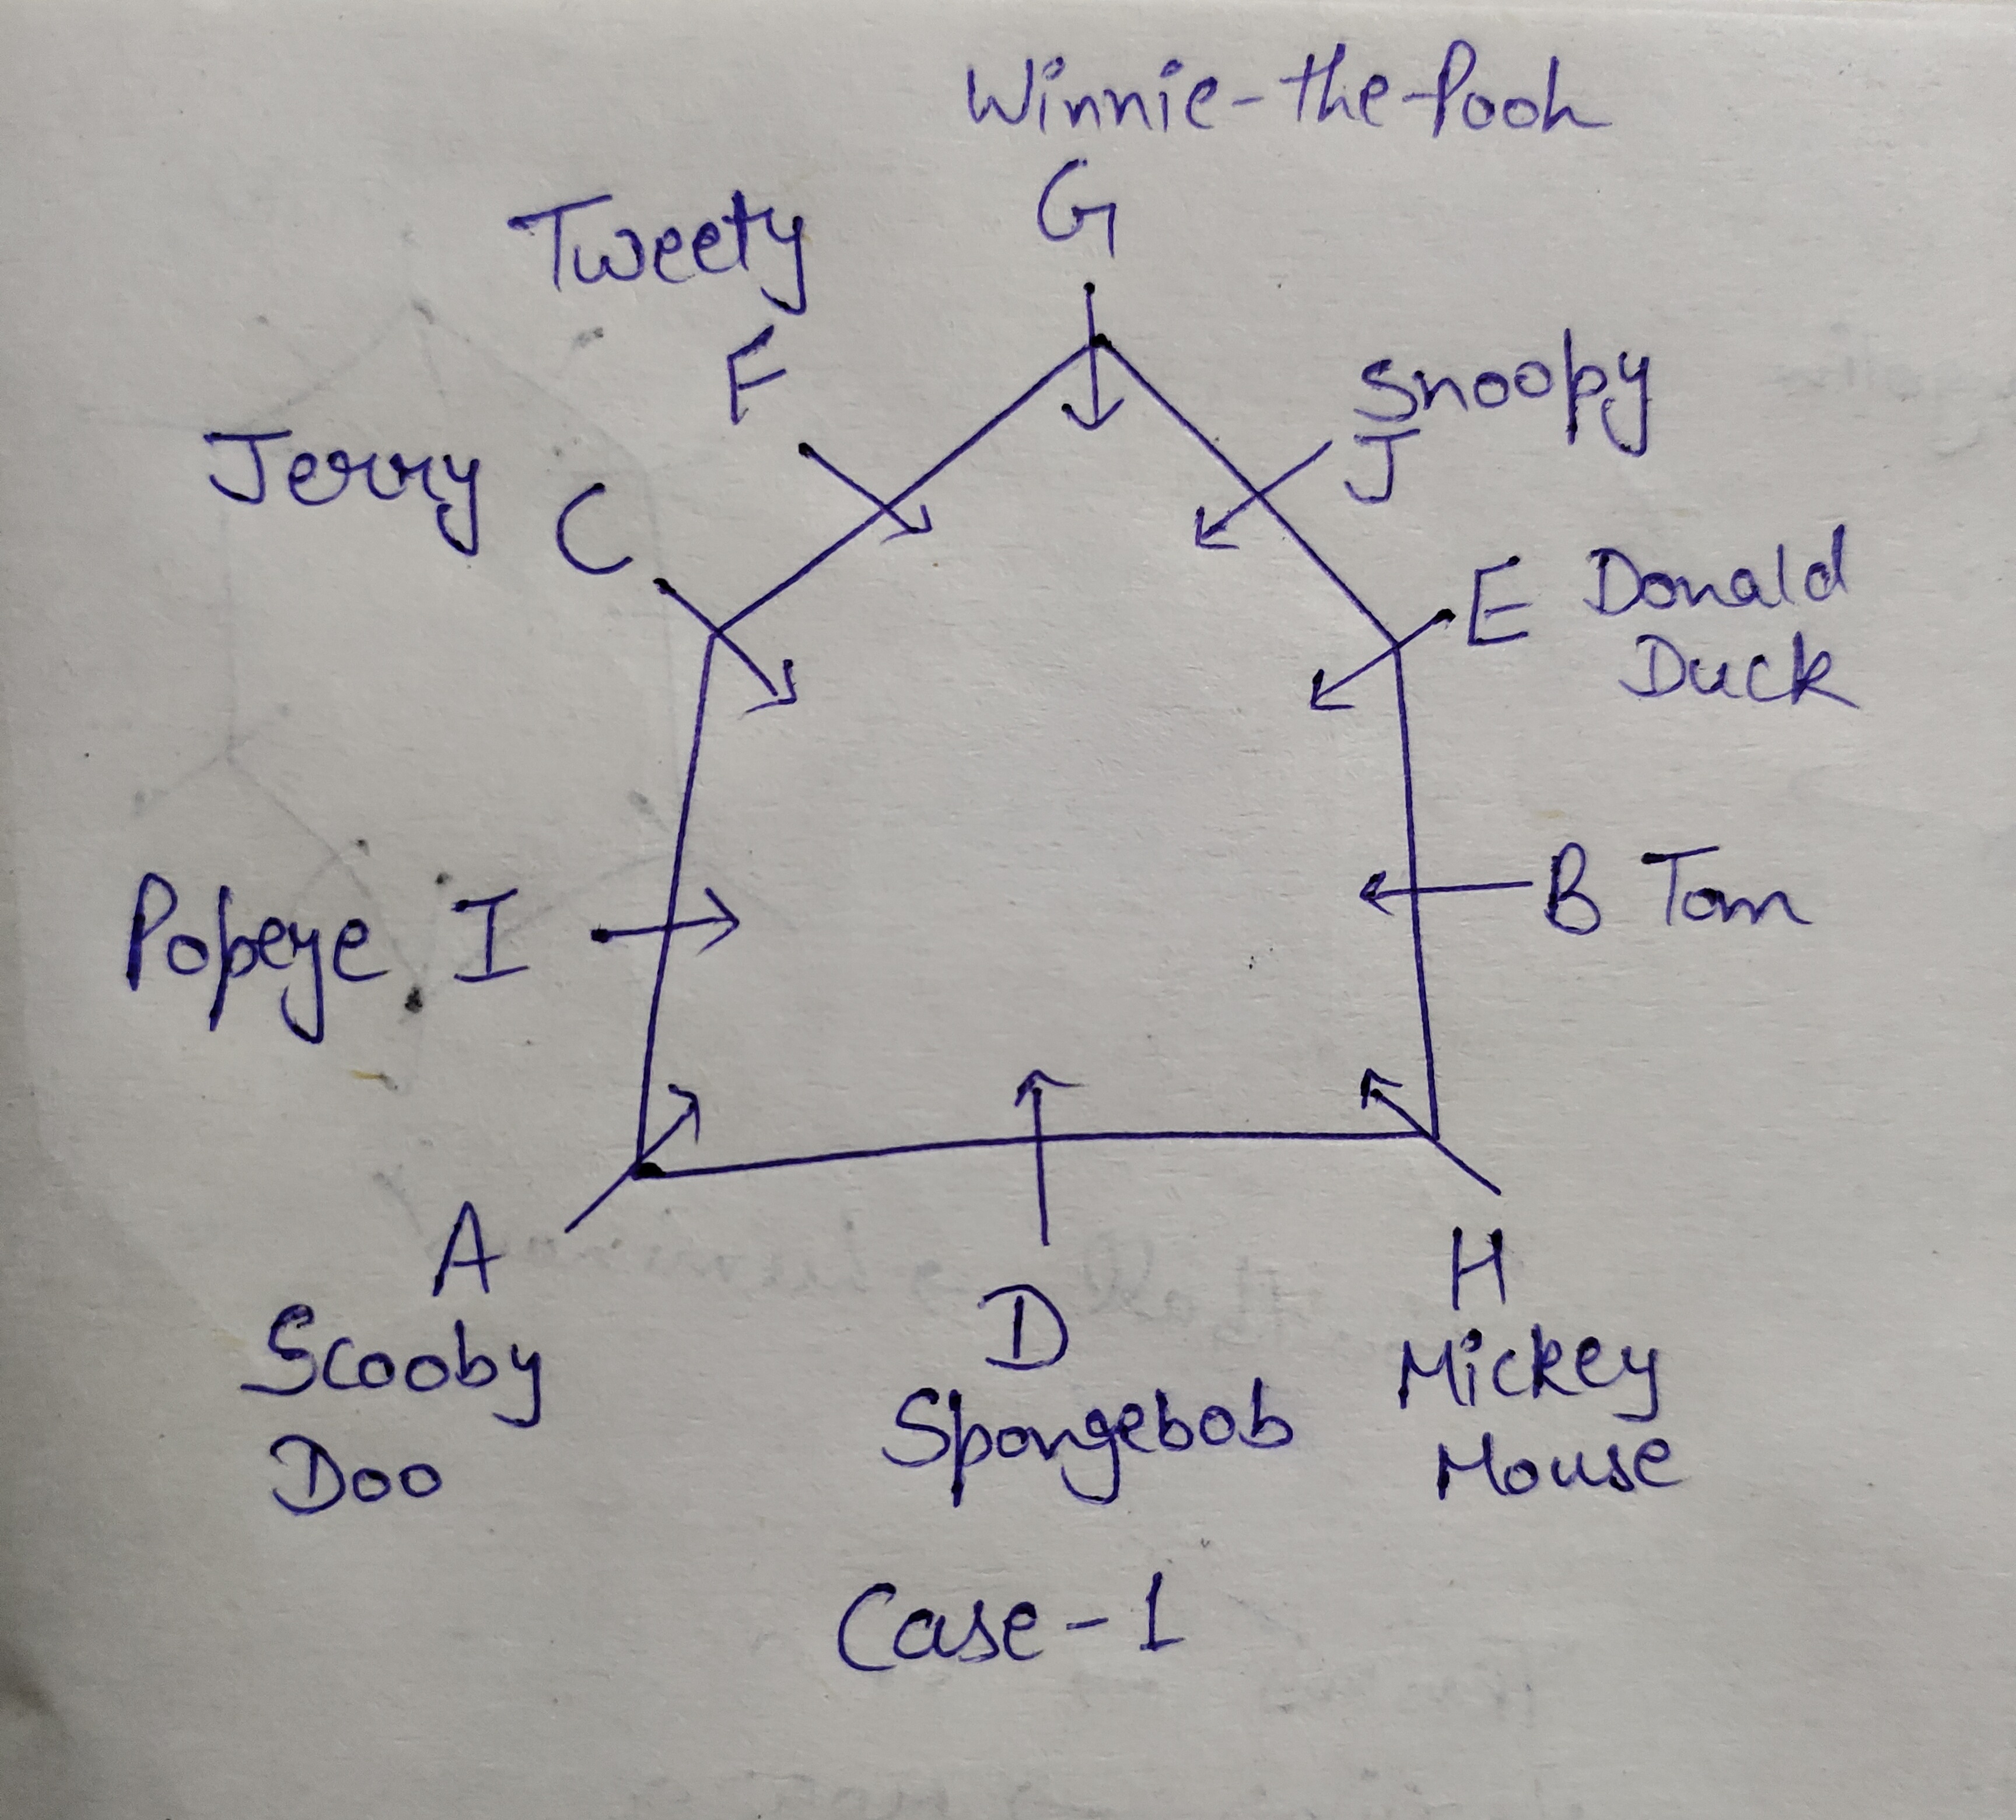 Winnie-the-Pooh
G
Tweety
F
Snoopy
J
Jerry C
E Donald
Duck
Popeye I
B Tom
A
Scooby
Doo
D
Spongebob
H
Mickey
Mouse
Case-1